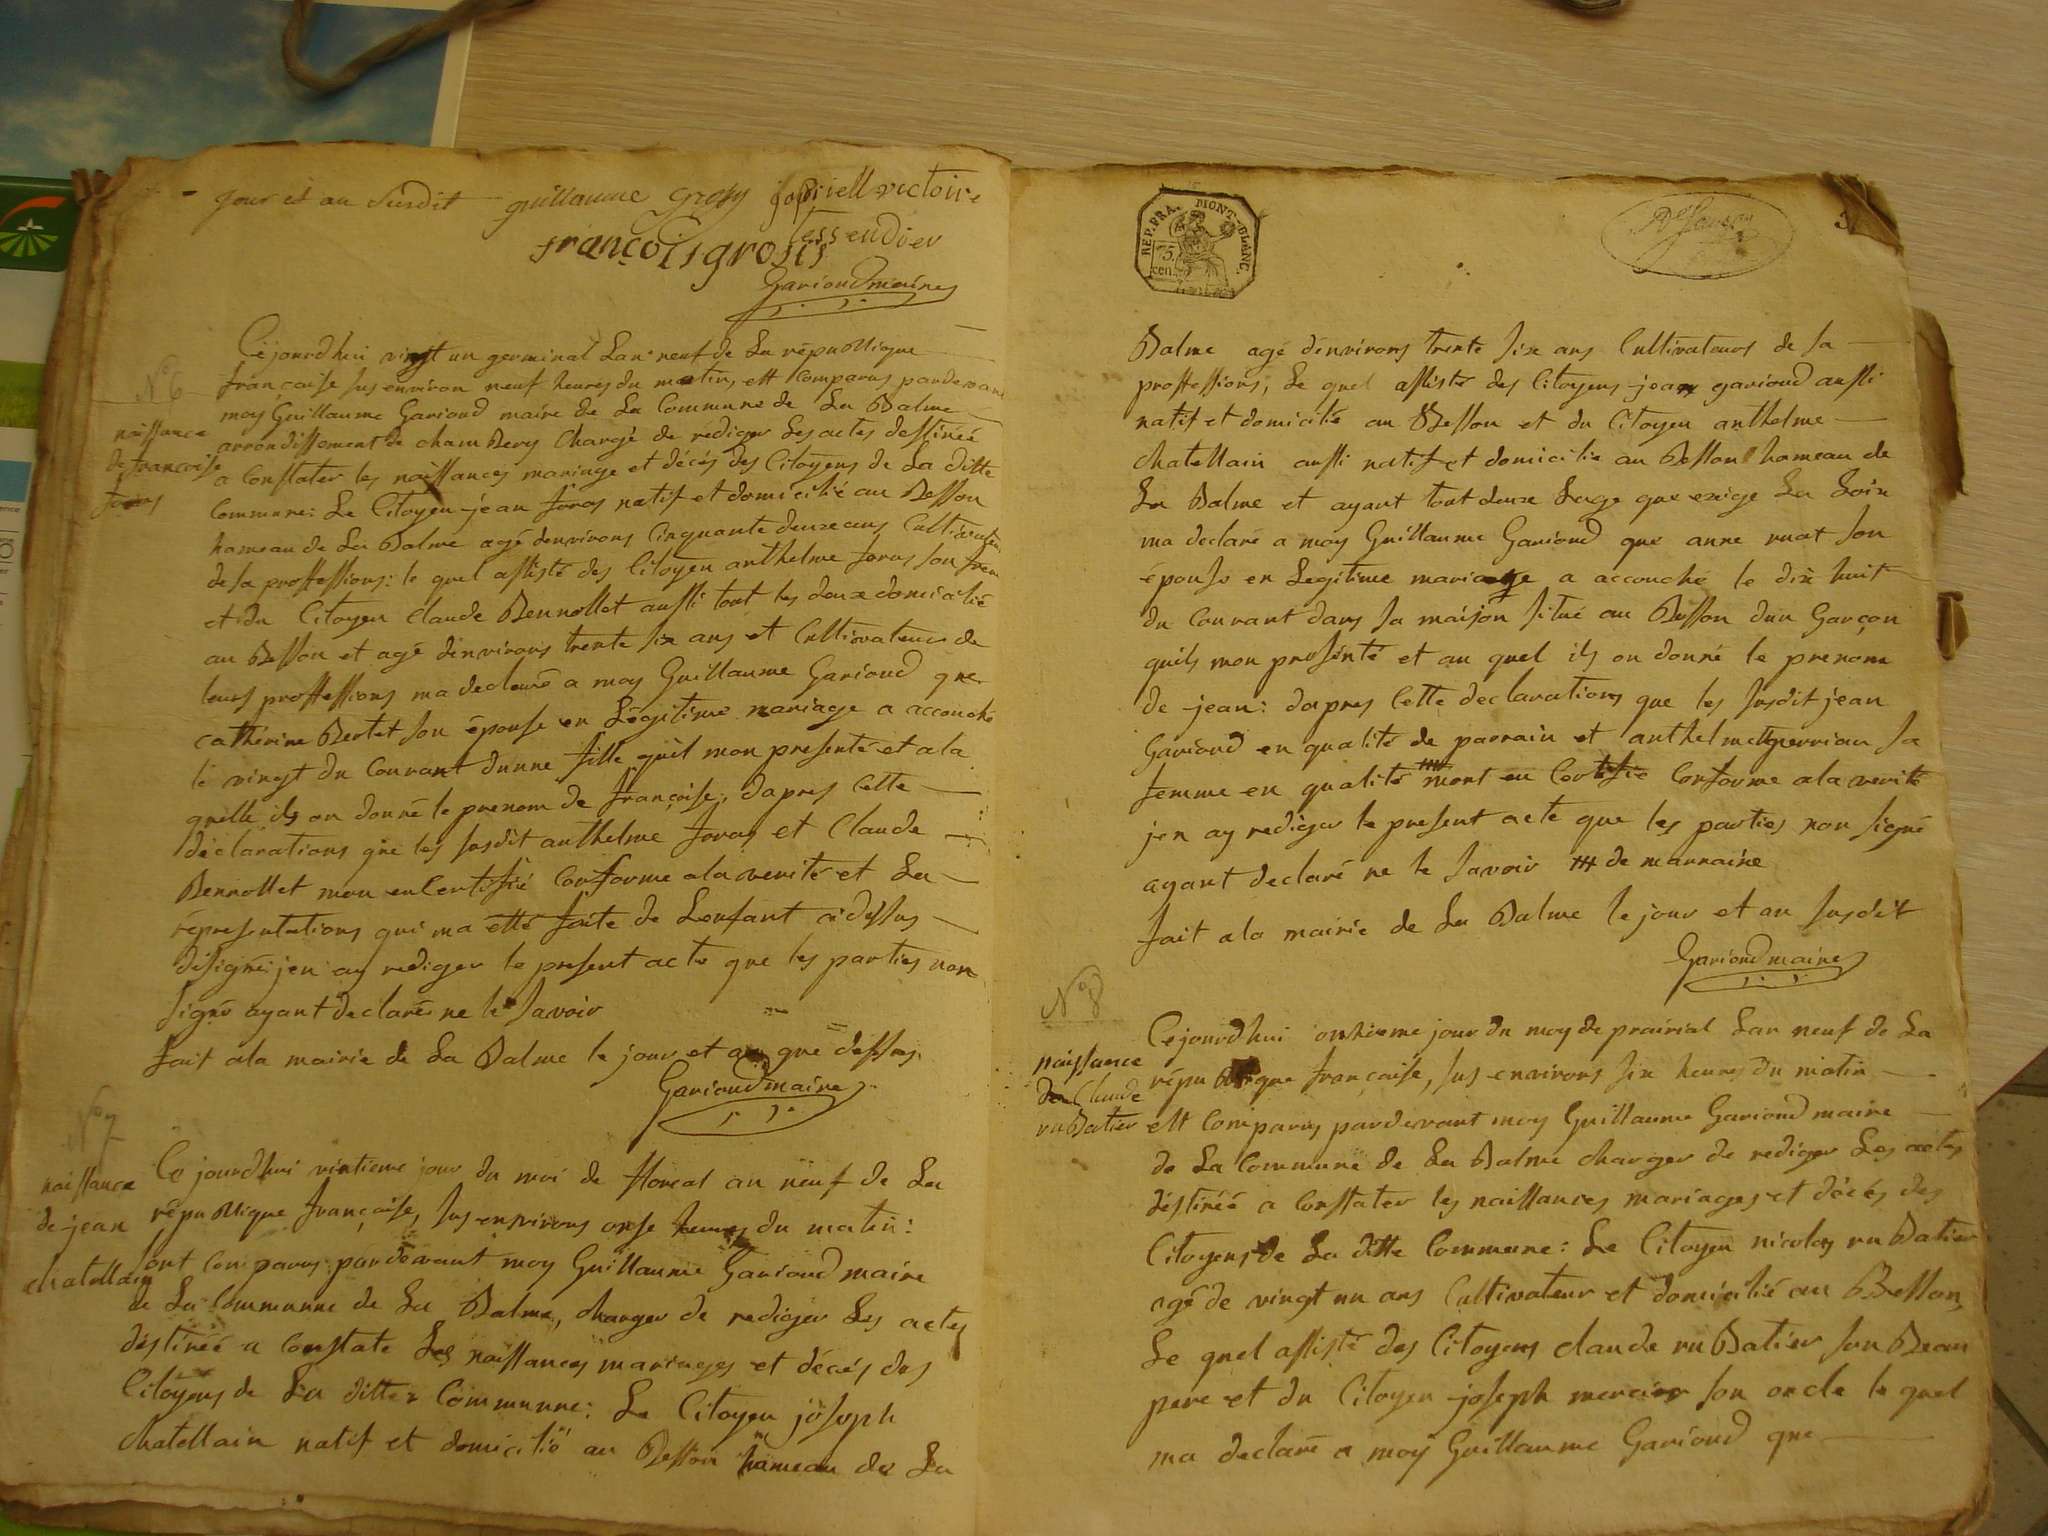 jour et an Susdit guillaume grosy
victoire
tessendier
françois grosis
Garioud maire
N° 6
naissance
de françoise
foras
Cejourdhui vingt un germinal Lan neuf de La république
française sus environ neuf heures du matin, est Comparus pardevant
moy Guillaume Garioud maire de La Commune de La Balme
arrondissement de chambery Chargé de rédiger Les actes destinéé
a Constater les naissances mariage et décés des Citoyens de La ditte
Commune: Le Citoyen jéan foras natif et domicilié au Besson
hameau de La Balme agé denvirons Cinquante deux ans Cultivateur
de sa proffessions: le quel assisté des Citoyen anthelme foras son frere
et du Citoyen Claude Bennollet aussi tout les deux domicilié
au Besson et agé denvirons trente six ans et Cultivateur de
leurs proffessions ma declaré a moy Guillaume Garioud que
catherine Bertet son épouse en Légitime mariage a accouché
le vingt du Courant dunne fille quil mon presenté et a la
quelle ils on donné le prenom de françoise, dapres Cette
déclarations que les susdit anthelme foras et Claude
Bennollet mon en Certifié Conforme a la verité et La
répresentations qui ma étté faite de Lenfant cidessus
désigné jen ay rediger le present acte que les parties non
signé ayant declaré ne le savoir
fait ala mairie de La Balme le jour et an que dessus
Garioud maire
N° 7
naissance
de jean
chatellain
Ce jourdhui vintieme jour du moi de floreal an neuf de La
république française, sus environs onse heures du matin:
sont Comparus pardevant moy Guillaume Garioud maire
de La Commune de La Balme, charger de rediger Les actes
déstinéé a Constate Les naissances mariages et décés des
Citoyens de La ditte Commune: Le Citoyen joseph
chatellain natif et domicilié au Besson hameau de La
REP. FRA. MONT-BLANC.
75.
cen.
3
Balme agé dénvirons trente six ans Cultivateurs de sa
proffessions, Le quel assisté des Citoyens jean garioud aussi
natif et domicilié au Besson et du Citoyen anthelme
chatellain aussi natif et domicilié au Besson hameau de
La Balme et ayant tout deux Lage que exige La Loix
ma declaré a moy Guillaume Garioud que anne ruat son
épouse en Legitime mariage a accouché le dix huit
du Courant dans sa maison situé au Besson dun Garçon
quils mon présénté et au quel ils on donné le prenom
de jean: dapres Cette declarations que les susdit jean
Garioud en qualité de parrain et anthelmette perrian sa
femme en qualité ## mont en Certifié Conforme a la verité
jen ay rediger le present acte que les parties non signé
ayant declaré ne le savoir ## de marraine
fait ala mairie de La Balme le jour et an susdit
Garioud maire
N° 8
naissance
de Claude
ruBatier
Cejourdhui onhieme jour du moy de prairial Lan neuf de La
république française, sus environs six heures du matin
est Comparus pardevant moy Guillaume Garioud maire
de La Commune de La Balme charger de rediger Les actes
déstinéé a Constater les naissances mariages et décés des
Citoyens de La ditte Commune: Le Citoyen nicolas ruBatier
agé de vingt un ans Cultivateur et domicilié au Besson,
Le quel assisté des Citoyens claude ruBatier son Beau
pere et du Citoyen joseph mercier son oncle le quel
ma declaré a moy Guillaume Garioud que